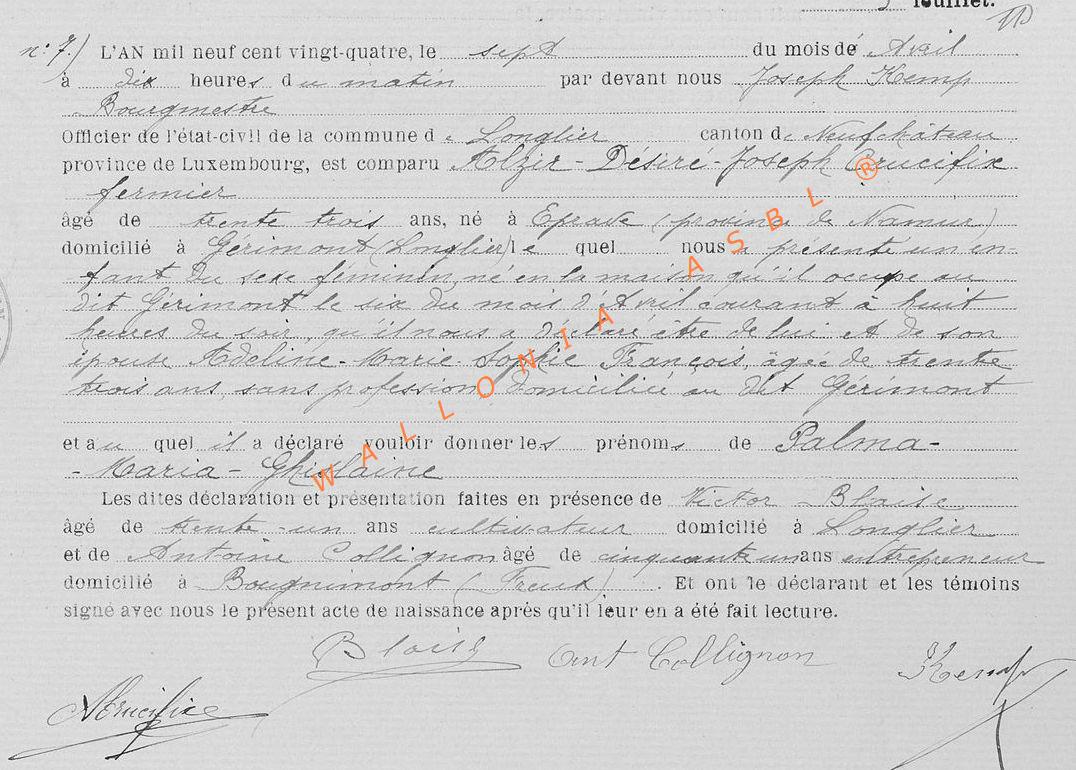 feuillet.
n° 7) L'AN mil neuf cent vingt-quatre, le sept du mois de Avril
à dix heures du matin par devant nous Joseph Kemp
Bourgmestre
Officier de l'état-civil de la commune de Longlier canton de Neufchâteau
province de Luxembourg, est comparu Alzir-Désiré-Joseph Crucifix
fermier
âgé de trente trois ans, né à Eprave (province de Namur)
domicilié à Gérimont (Longlier) le quel nous a présenté un en-
fant du sexe féminin, né en la maison qu'il occupe au
dit Gérimont le six du mois d'Avril courant à huit
heures du soir, qu'il nous a déclaré être de lui et de son
épouse Adeline-Marie-Sophie François, âgée de trente
trois ans, sans profession, domiciliée au dit Gérimont
et au quel il a déclaré vouloir donner les prénoms de Palma-
-Maria-Ghislaine
Les dites déclaration et présentation faites en présence de Victor Blaise
âgé de trente-un ans cultivateur domicilié à Longlier
et de Antoine Collignon âgé de cinquante un ans entrepreneur
domicilié à Bougnimont (Freux). Et ont le déclarant et les témoins
signé avec nous le présent acte de naissance après qu'il leur en a été fait lecture.
Blaise Ant Collignon Kemp
ACrucifix
WALLONIA ASBL ®